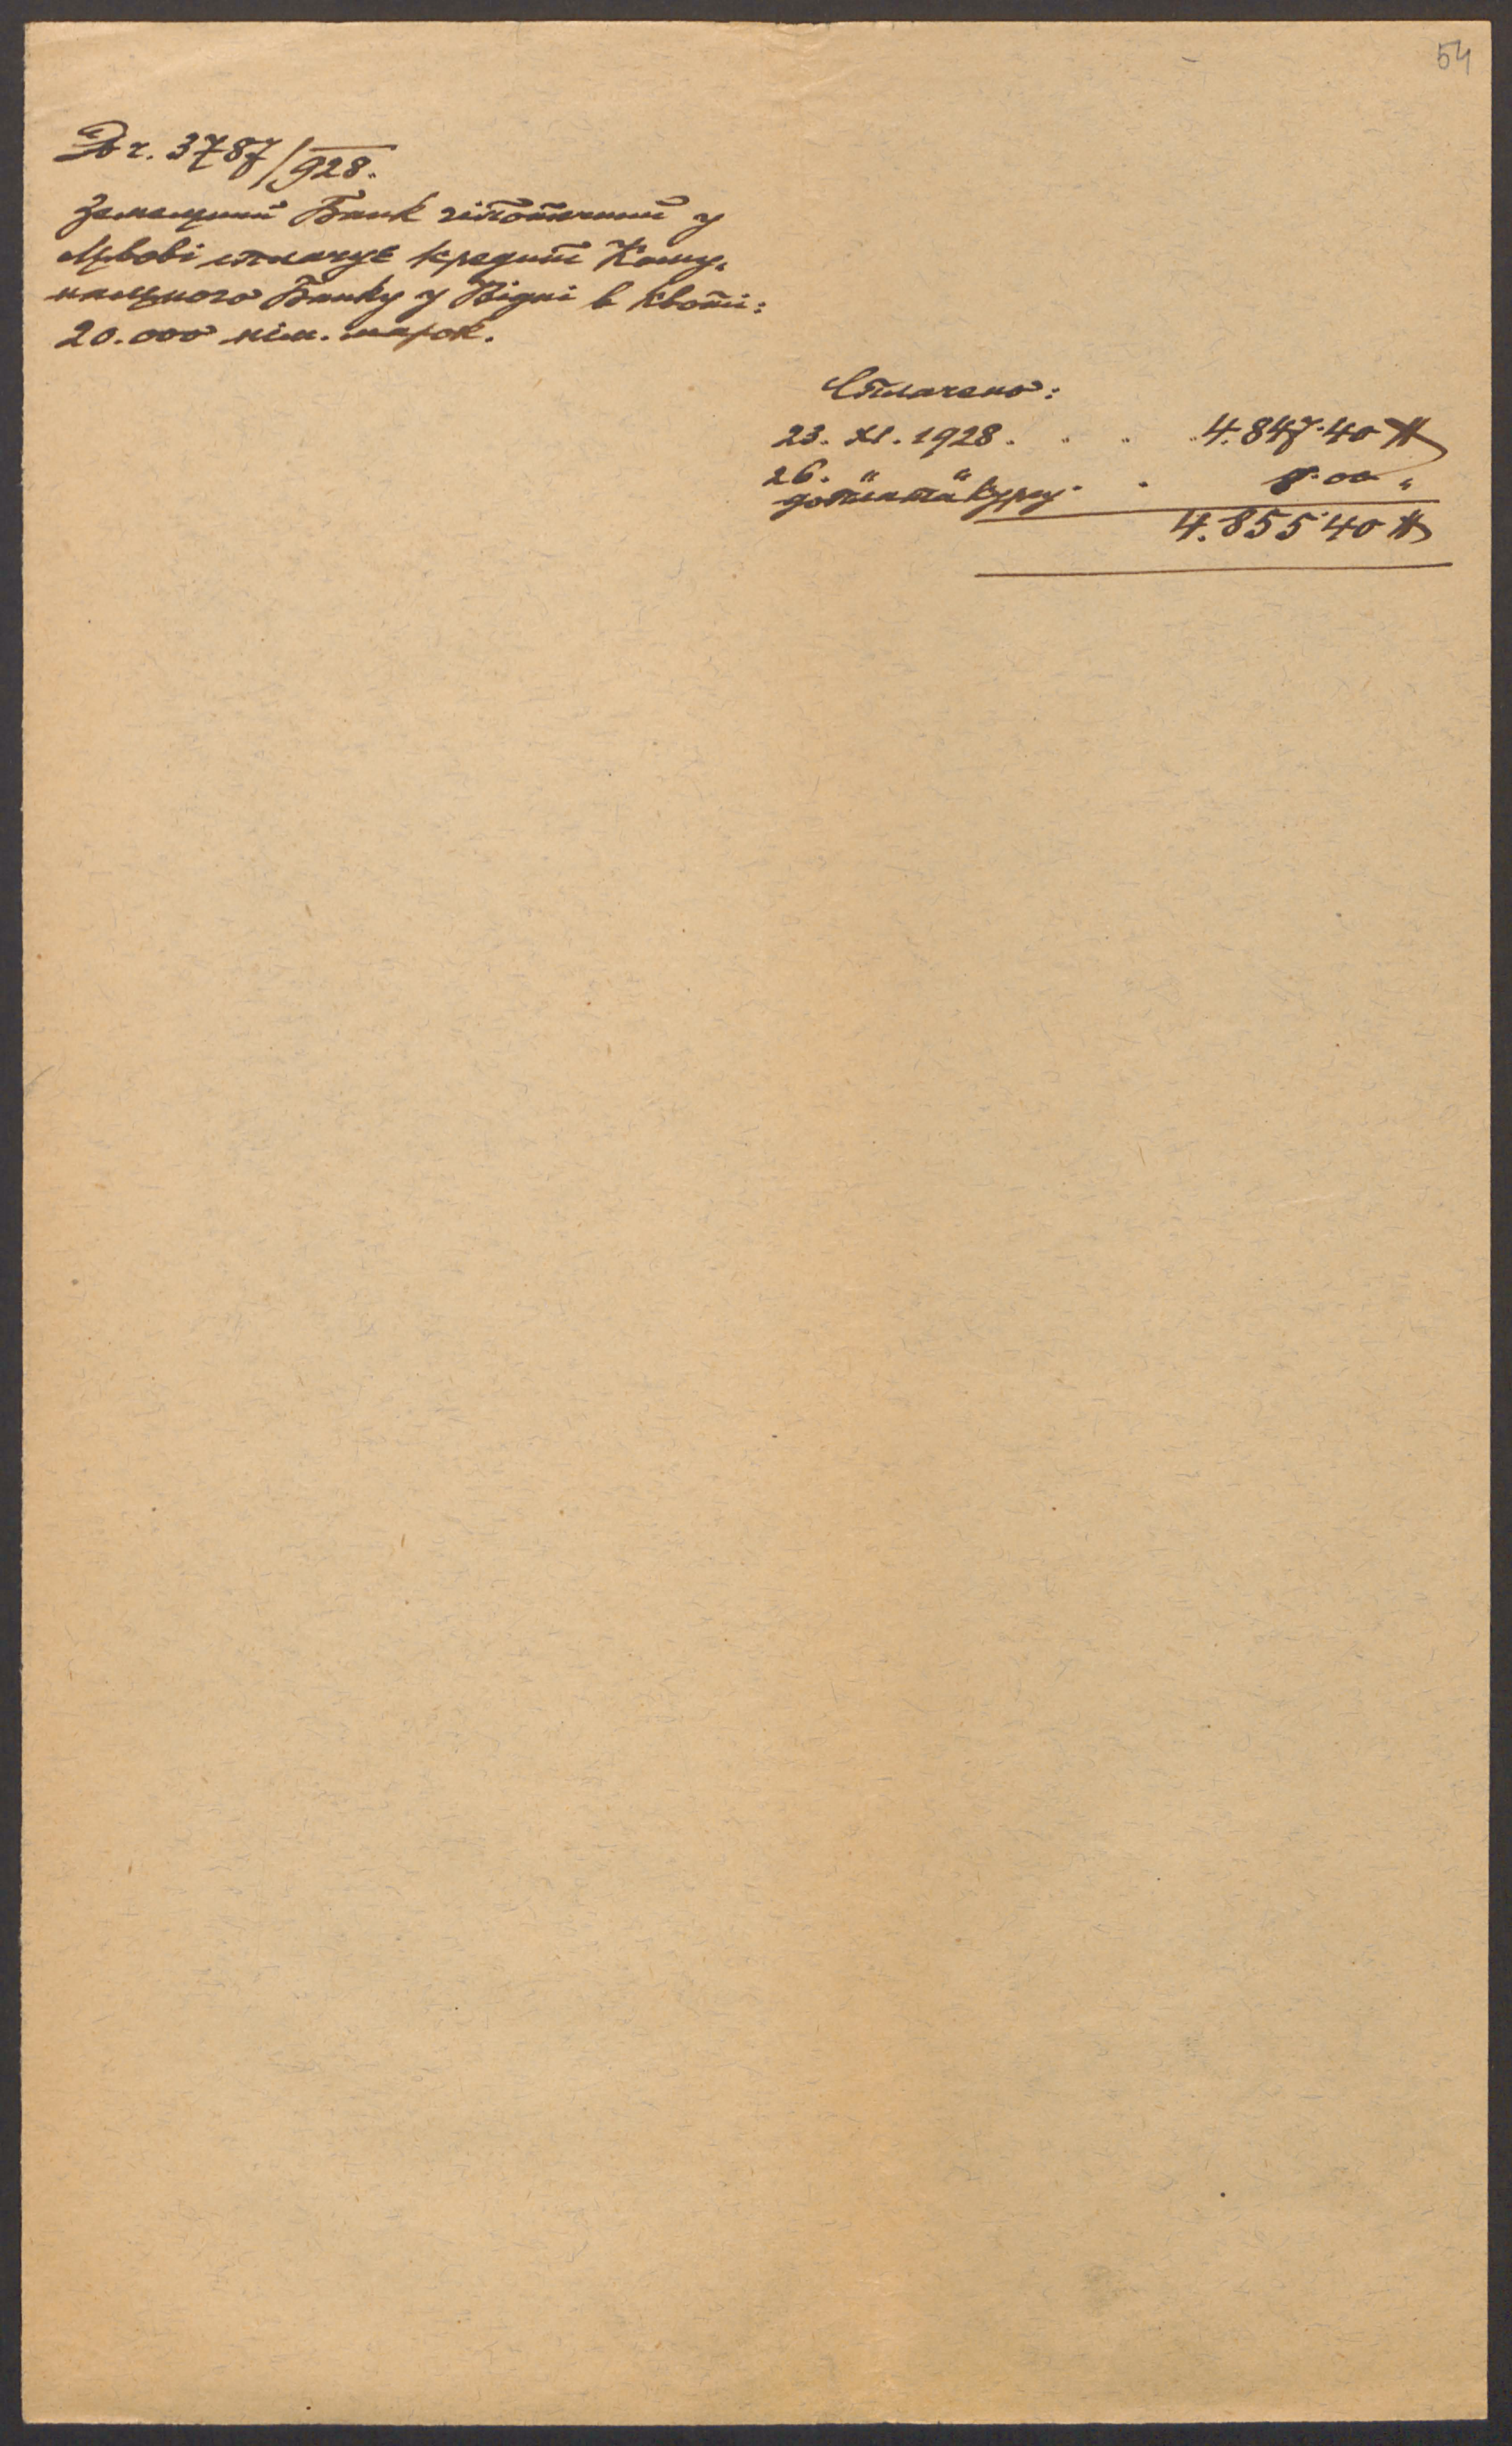 54
Др. 3787/928.
Земельний Банк гіпотечний у
Львові сплачує кредит Кому-
нального Банку у Відні в квоті:
20.000 нім. марок.
Сплачено:
23. XI. 1928 . . . 4.847.40 #
26. " "
доплата курсу . . 8.00 "
4.855.40 #